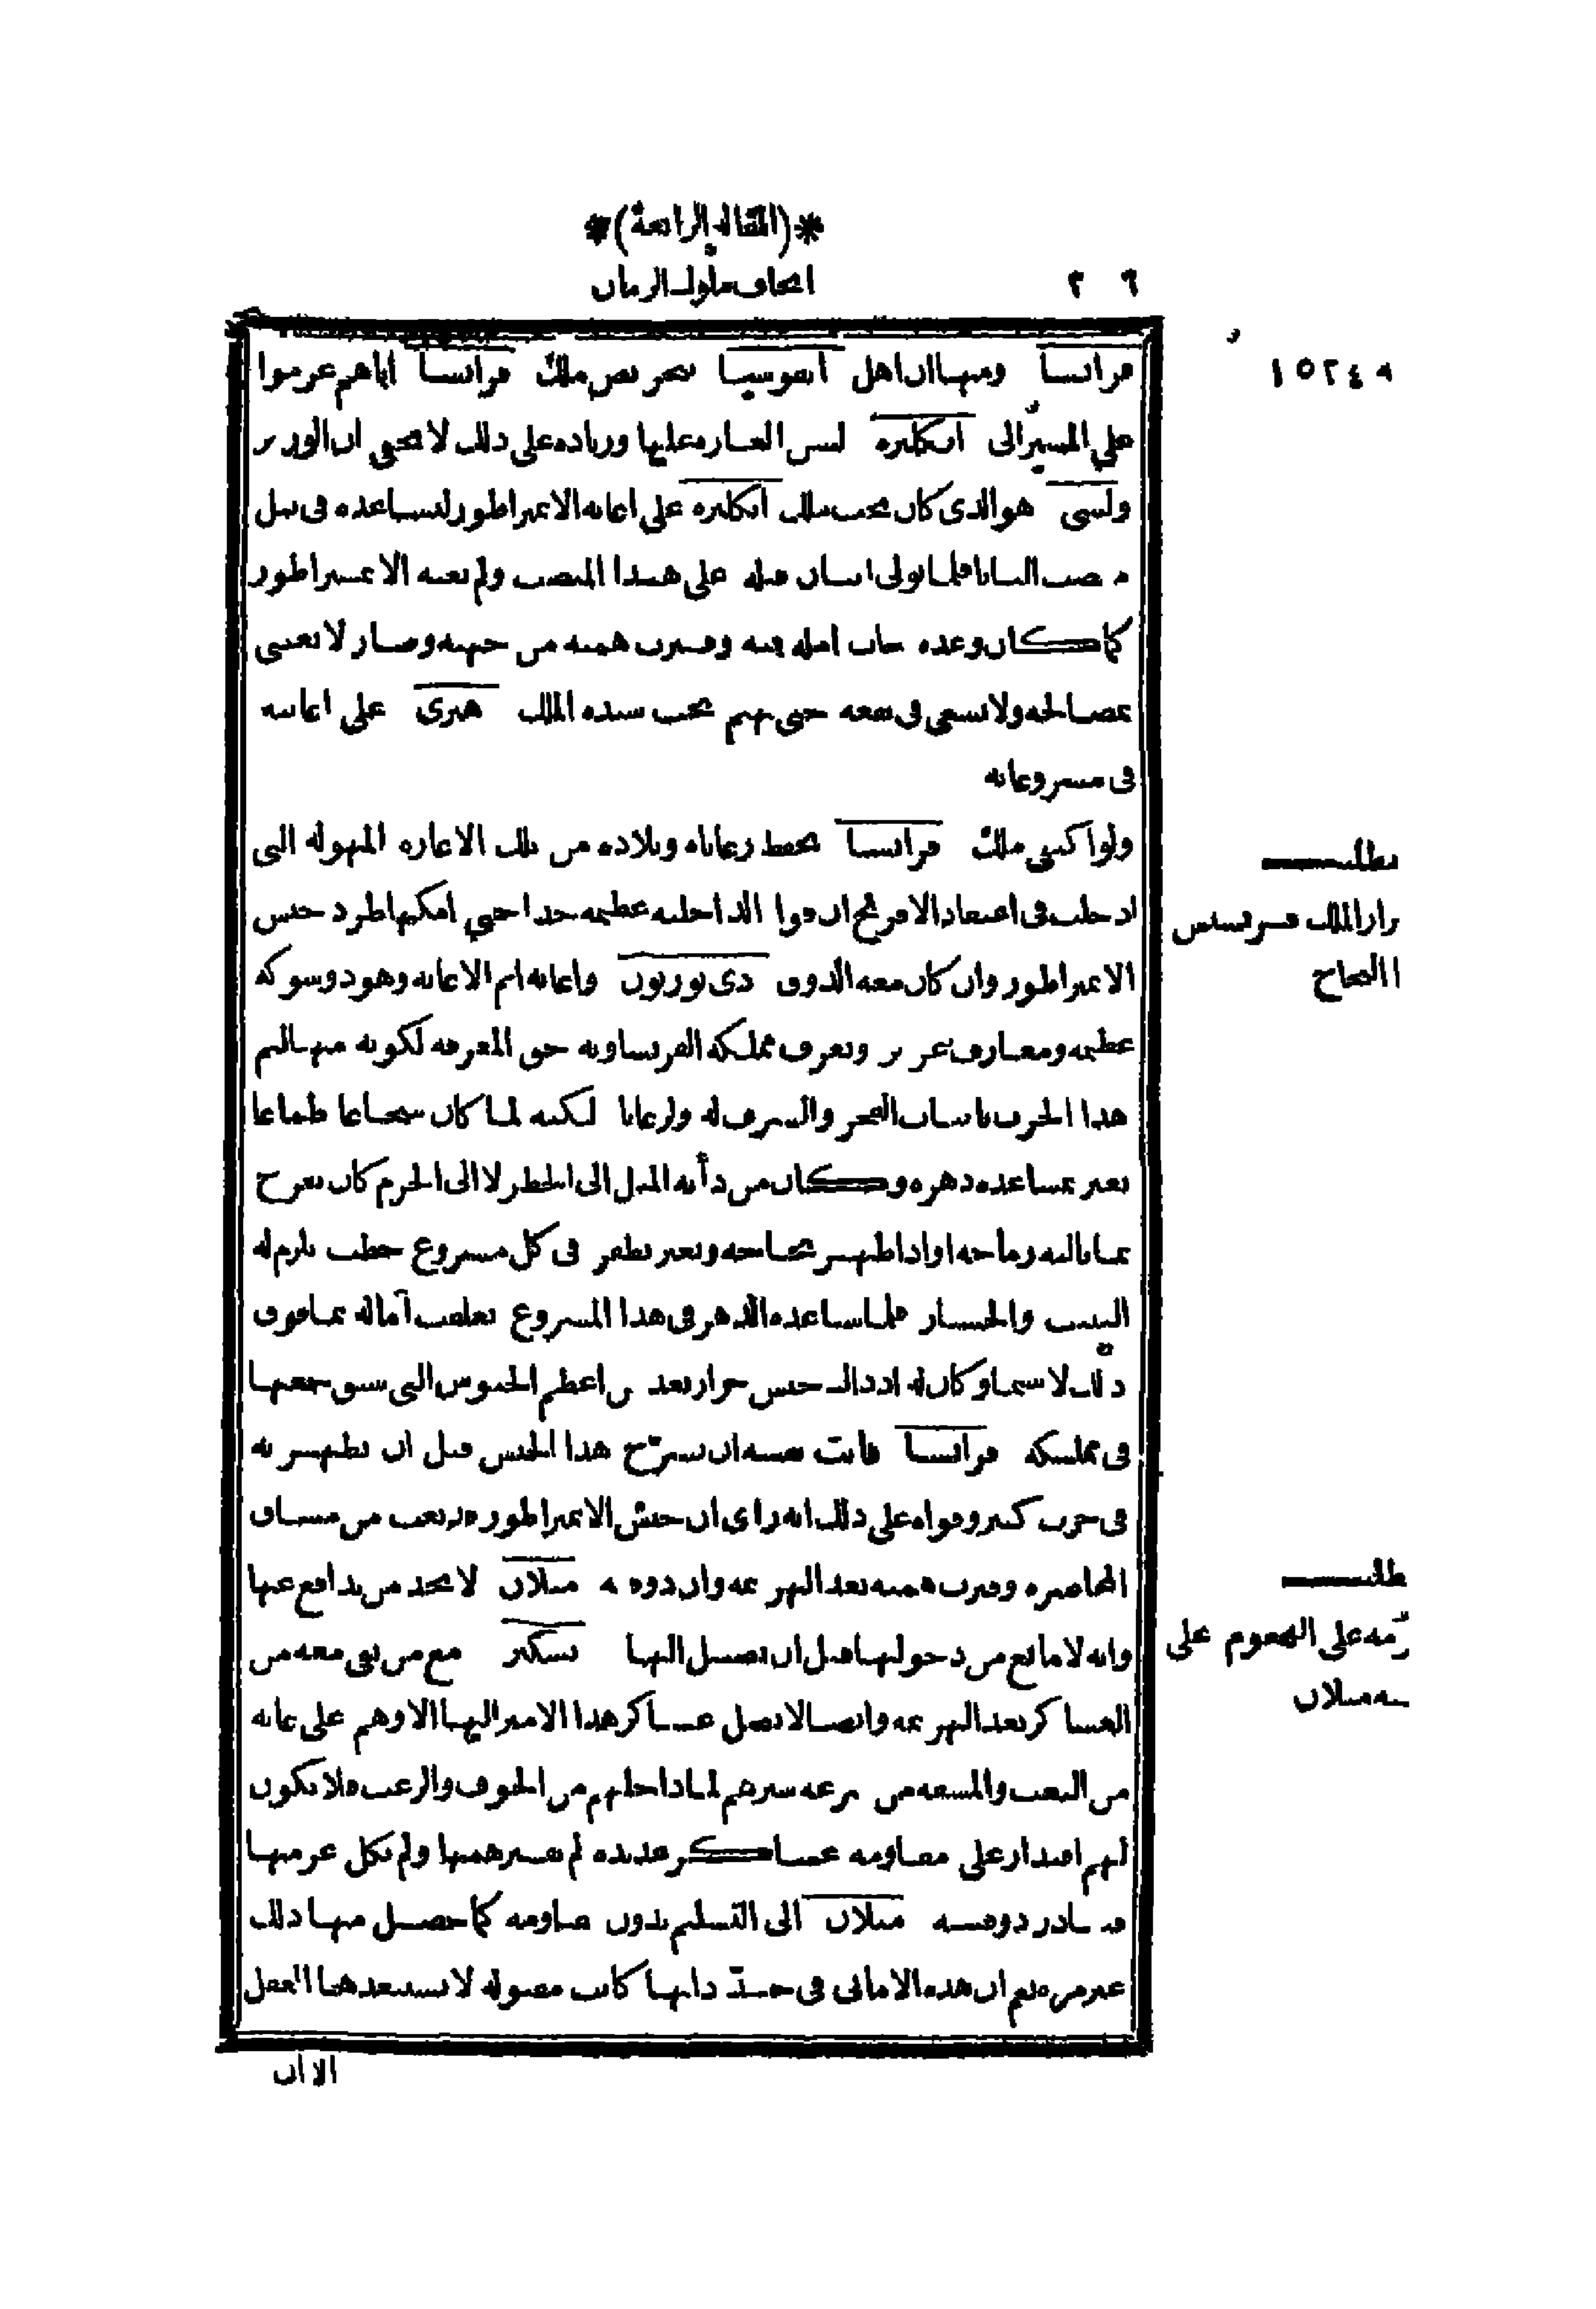 *(المقالة الرابعة)*
اتحاف ملوك الزمان
سنة ١٥٢٤
فرانسا ومنها ان اهل ايقوسيا بتحريض ملك فرانسا اياهم عزموا
على المسير الى انكلتره لشن الغارة عليها وزيادة على ذلك لا يخفى ان الوزير
ولسى هو الذى كان يحث ملك انكلتره على اعانة الايمبراطور ليساعده فى نيل
منصب البابا فلما تولى اثنان قبله على هذا المنصب ولم يعنه الايمبراطور
كما كان وعده خاب امله فيه وفترت همته من جهته وصار لا يعتنى
بمصالحه ولا يسعى فى نفعه حتى يهم بحث سيده الملك هنرى على اعانته
فى مشروعاته
ولو اكتفى ملك فرانسا بحفظ رعاياه وبلاده من تلك الاغارة المهولة التى
ادخلت فى اعتقاد الافرنج ان قوا الداخلية عظيمة جدا حتى امكنها طرد جيش
الايمبراطور وان كان معه الدوق دى بوربون واعانه اتم الاعانة وهو ذو شوكة
عظيمة ومعارف غزيرة ويعرف مملكة الفرنساوية حق المعرفة لكونه منها لتم
هذا الحرب باسباب الفخر والشرف له ولرعايا لكنه لما كان شجاعا طماعا
يغتر بمساعدة دهره وكان من دأبه الميل الى الخطر لا الى الحزم كان يفرح
بما باليه رماحه او اذا ظهر شجاعته ويغتر بظفر فى كل مشروع خطب يلزم له
التثبت والخسار فلما ساعده الدهر فى هذا المشروع تعلقت آماله بما فوق
ذلك لا سيما وكان له اذ ذاك جيش جرار يعد من اعظم الجيوش التى سبق جمعها
فى مملكة فرانسا فابت نفسه ان يسرّح هذا الجيش قبل ان يظهر به
فى حرب كبير وقواه على ذلك انه راى ان جيش الايمبراطور قد تعب من مشاق
المحاصرة وفترت همته بعد الهزيمة وان دوقة ميلان لا تجد من يدافع عنها
وانه لا مانع من دخولها قبل ان يصل اليها بسكير مع من بقى معه من
العساكر بعد الهزيمة وايضا لا تصل عساكر هذا الامير اليها الا وهم على غاية
من التعب والمشقة من سرعة سيرهم لما داخلهم من الخوف والرعب فلا يكون
لهم اقتدار على مقاومة عساكر عديدة لم تفتر همتها ولم تكل عزمها
فتبادر دوقية ميلان الى التسليم بدون مقاومة كما حصل منها ذلك
غير مرة نعم ان هذه الامانى فى حدّ ذاتها كانت مقبولة لا يستبعدها العقل
مطلب
قرار الملك فرنسيس
مطلب
عزمه على الهجوم على
دوقية ميلان
الا ان